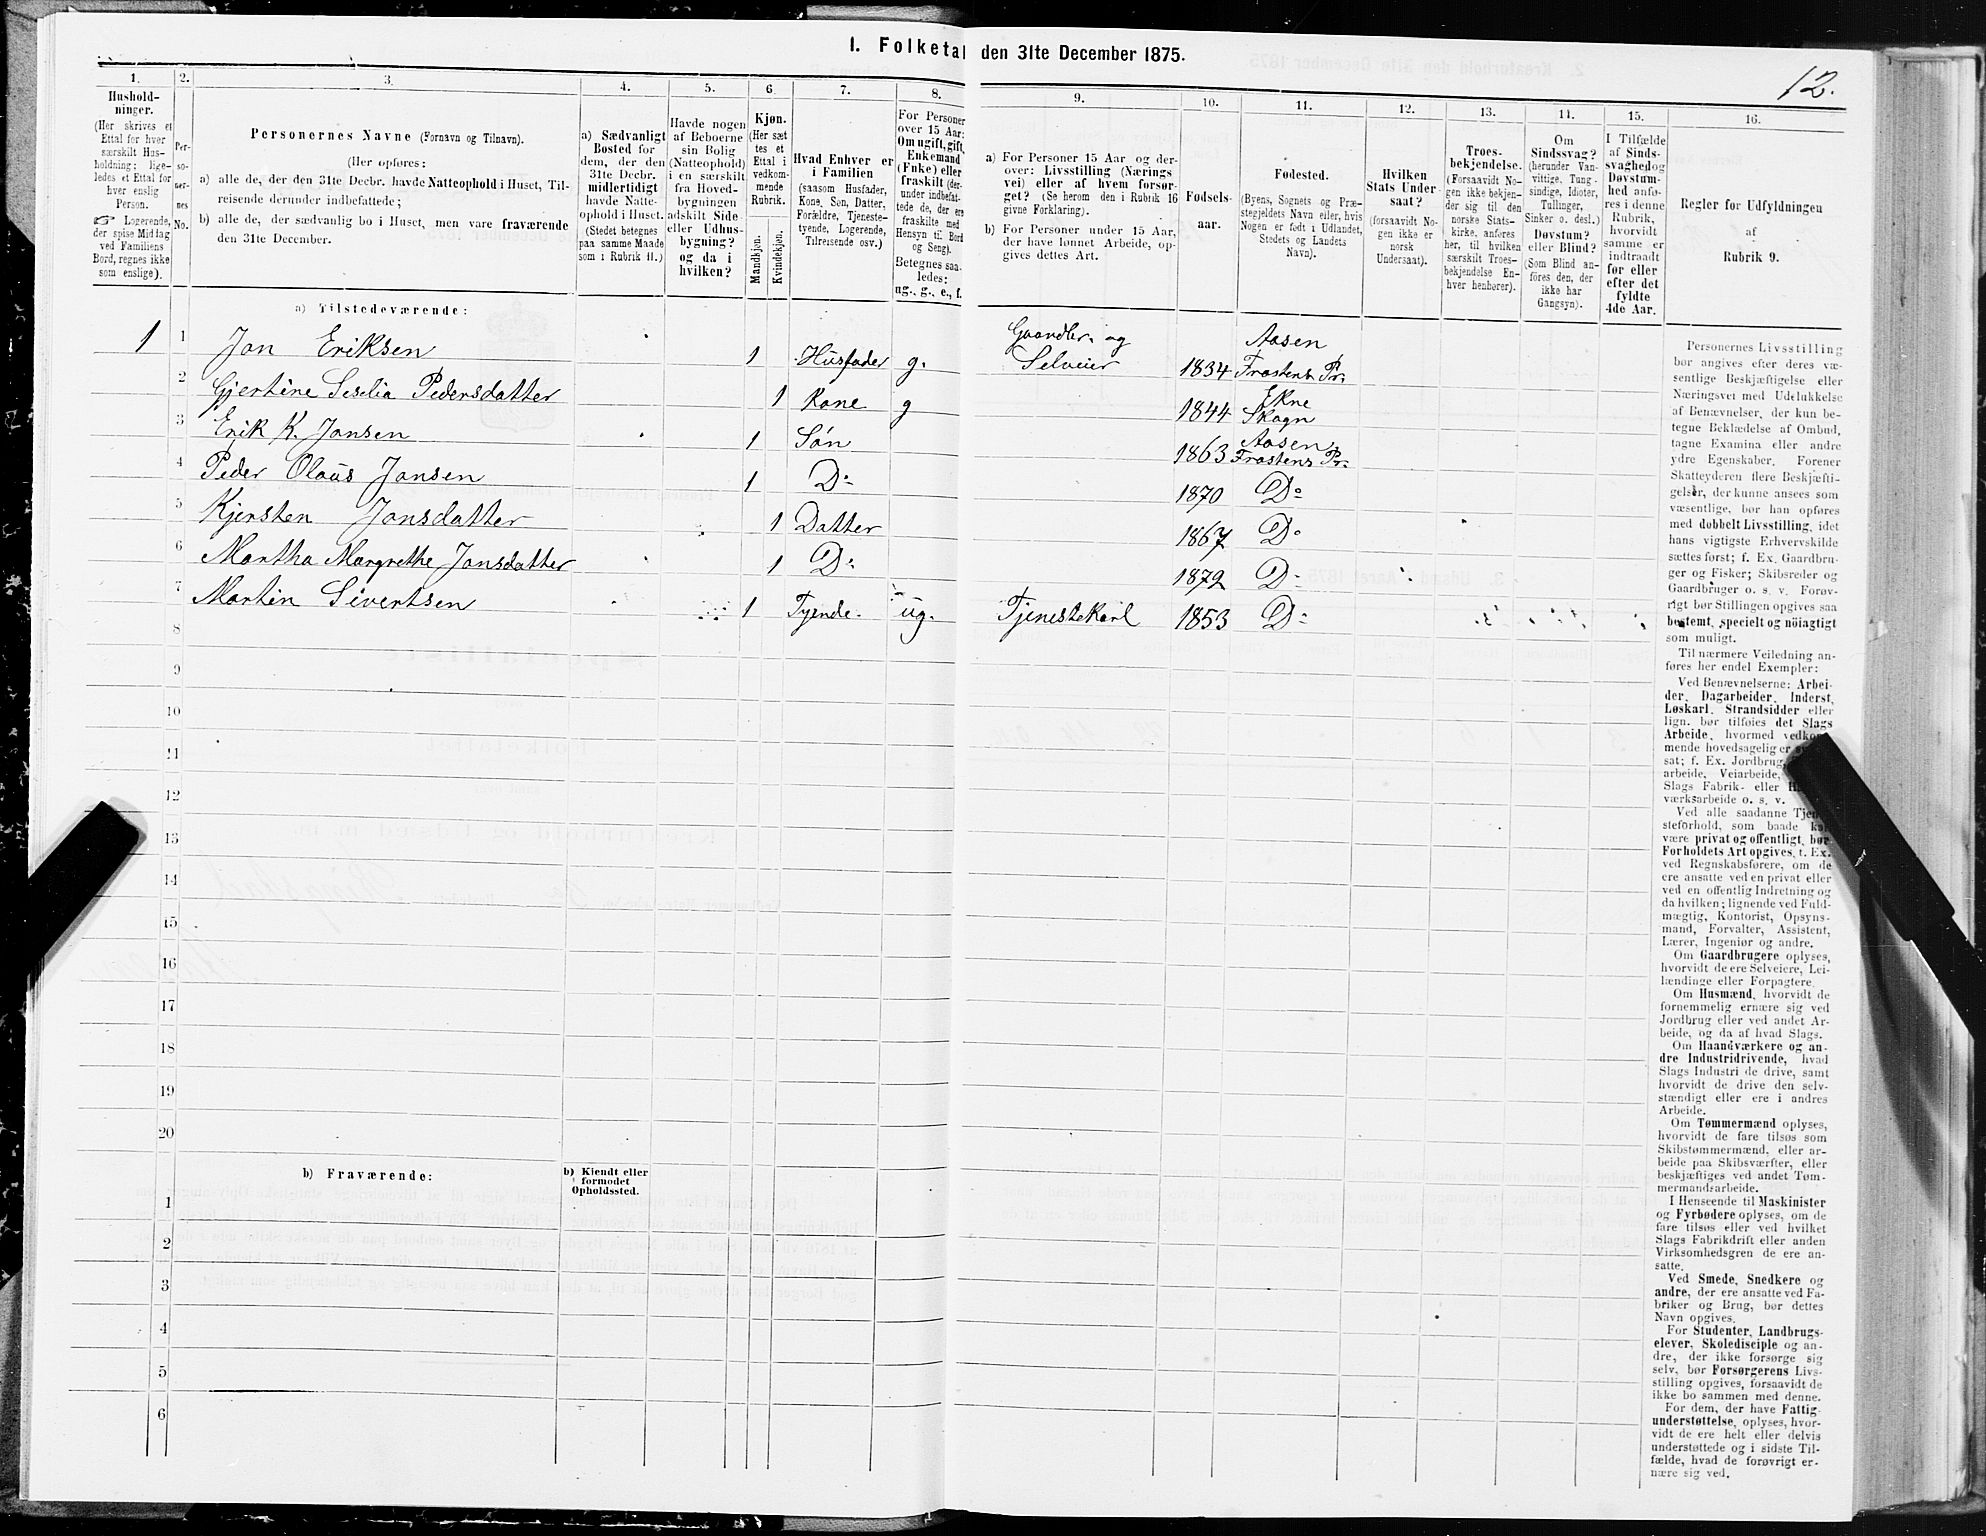 I. Folketal den 31te December 1875.
12.
1.
Hushold-
ninger.
(Her skrives et
Ettal for hver
særskilt Hus-
holdning; lige-
ledes et Ettal for
hver enslig
Person.
☞ Logerende,
der spise Middag
ved Familiens
Bord, regnes ikke
som enslige).
2.
Per-
so-
ner-
nes
No.
3.
Personernes Navne (Fornavn og Tilnavn).
(Her opføres:
a) alle de, der den 31te Decbr. havde Natteophold i Huset, Til-
reisende derunder indbefattede;
b) alle de, der sædvanlig bo i Huset, men vare fraværende
den 31te December.
4.
a) Sædvanligt
Bosted for
dem, der den
31te Decbr.
midlertidigt
havde Natte-
ophold i Huset.
(Stedet betegnes
paa samme Maade
som i Rubrik 11.)
5.
Havde nogen
af Beboerne
sin Bolig
(Natteophold)
i en særskilt
fra Hoved-
bygningen
adskilt Side-
eller Udhus-
bygning?
og da i
hvilken?
6.
Kjøn.
(Her sæt-
tes et
Ettal i
vedkom-
mende
Rubrik.
Mandkjøn.
Kvindekjøn.
7.
Hvad Enhver er
i Familien
(saasom Husfader,
Kone, Søn, Datter,
Forældre, Tjeneste-
tyende, Logerende,
Tilreisende osv.)
8.
For Personer
over 15 Aar:
Om ugift, gift,
Enkemand
(Enke) eller
fraskilt (der-
under indbefat-
tede de, der ere
fraskilte med
Hensyn til Bord
og Seng).
Betegnes saa-
ledes:
ug., g., e., f.
9.
a) For Personer 15 Aar og der-
over: Livsstilling (Nærings-
vei) eller af hvem forsør-
get? (Se herom den i Rubrik 16
givne Forklaring).
b) For Personer under 15 Aar,
der have lønnet Arbeide, op-
gives dettes Art.
10.
Fødsels-
aar.
11.
Fødested.
(Byens, Sognets og Præ-
stegjeldets Navn eller, hvis
Nogen er født i Udlandet,
Stedets og Landets
Navn).
12.
Hvilken
Stats Under-
saat?
(forsaavidt No-
gen ikke er
norsk
Undersaat).
13.
Troes-
bekjendelse.
(Forsaavidt No-
gen ikke bekjen-
der sig til den
norske Stats-
kirke, anføres
her, til hvilken
særskilt Troes-
bekjendelse En-
hver henhører).
14.
Om
Sindssvag?
(herunder Van-
vittige, Tung-
sindige, Idioter,
Tullinger,
Sinker o. desl.)
Døvstum?
eller Blind?
(Som Blind an-
føres den, der
ikke har
Gangsyn).
15.
I Tilfælde
af Sinds-
svaghed og
Døvstum-
hed anfø-
res i denne
Rubrik,
hvorvidt
samme er
indtraadt
før eller
efter det
fyldte
4de Aar.
16.
Regler for Udfyldningen
af
Rubrik 9.
a) Tilstedeværende:
1 1 Jon Eriksen 1 Husfader g. Gaardbr. og Selveier 1834 Aasen Frostens Pr.
2 Gjertine Seselia Pedersdatter 1 Kone g 1844 Ekne Skogn
3 Erik K. Jonsen 1 Søn 1863 Aasen Frostens Pr.
4 Peder Olaus Jonsen 1 Do 1870 Do
5 Kjersten Jonsdatter 1 Datter 1867 Do
6 Martha Margrethe Jonsdatter 1 Do 1872 Do
7 Martin Sivertsen 1 Tyende. ug. Tjenestekarl 1853 Do
8
9
10
11
12
13
14
15
16
17
18
19
20
b) Fraværende:
b) Kjendt eller
formodet
Opholdssted.
1
2
3
4
5
6
Personernes Livsstilling
bør angives efter deres væ-
sentlige Beskjæftigelse eller
Næringsvei med Udelukkelse
af Benævnelser, der kun be-
tegne Beklædelse af Ombud,
tagne Examina eller andre
ydre Egenskaber. Forener
Skatteyderen flere Beskjæfti-
gelser, der kunne ansees som
væsentlige, bør han opføres
med dobbelt Livsstilling, idet
hans vigtigste Erhvervskilde
sættes først; f. Ex. Gaardbru-
ger og Fisker; Skibsreder og
Gaardbruger o. s. v. Forøv-
rigt bør Stillingen opgives saa
bestemt, specielt og nöiagtigt
som muligt.
Til nærmere Veiledning an-
føres her endel Exempler:
Ved Benævnelserne: Arbei-
der, Dagarbeider, Inderst,
Løskarl, Strandsidder eller
lign. bør tilføies det Slags
Arbeide, hvormed vedkom-
mende hovedsagelig er
sat; f. Ex. Jordbrug,
arbeide, Veiarbeide,
Slags Fabrik- eller
værksarbeide o. s. v.
Ved alle saadanne Tjene-
steforhold, som baade
være privat og offentligt, bør
Forholdets Art opgives, t. Ex.
ved Regnskabsførere, om de
ere ansatte ved en privat eller
ved en offentlig Indretning og
da hvilken; lignende ved Fuld-
mægtig, Kontorist, Opsyns-
mand, Forvalter, Assistent,
Lærer, Ingeniør og andre.
Om Gaardbrugere oplyses,
hvorvidt de ere Selveiere, Lei-
lændinge eller Forpagtere.
Om Husmænd, hvorvidt de
fornemmelig ernære sig ved
Jordbrug eller ved andet Ar-
beide, og da af hvad Slags.
Om Haandværkere og an-
dre Industridrivende, hvad
Slags Industri de drive, samt
hvorvidt de drive den selv-
stændigt eller ere i andres
Arbeide.
Om Tømmermænd oplyses,
hvorvidt de fare tilsøs som
Skibstømmermænd, eller ar-
beide paa Skibsværfter, eller
beskjæftiges ved andet Tøm-
mermandsarbeide.
I Henseende til Maskinister
og Fyrbødere oplyses, om de
fare tilsøs eller ved hvilket
Slags Fabrikdrift eller anden
Virksomhedsgren de ere an-
satte.
Ved Smede, Snedkere og
andre, der ere ansatte ved Fa-
briker og Brug, bør dettes
Navn opgives.
For Studenter, Landbrugs-
elever, Skoledisciple og an-
dre, der ikke forsørge sig
selv, bør Forsørgerens Livs-
stilling opgives, forsaavidt de
ikke bo sammen med denne.
For dem, der have Fattig-
understøttelse, oplyses, hvor-
vidt de ere helt eller delvis
understøttede og i sidste Til-
fælde, hvad de forøvrigt er-
nære sig ved.